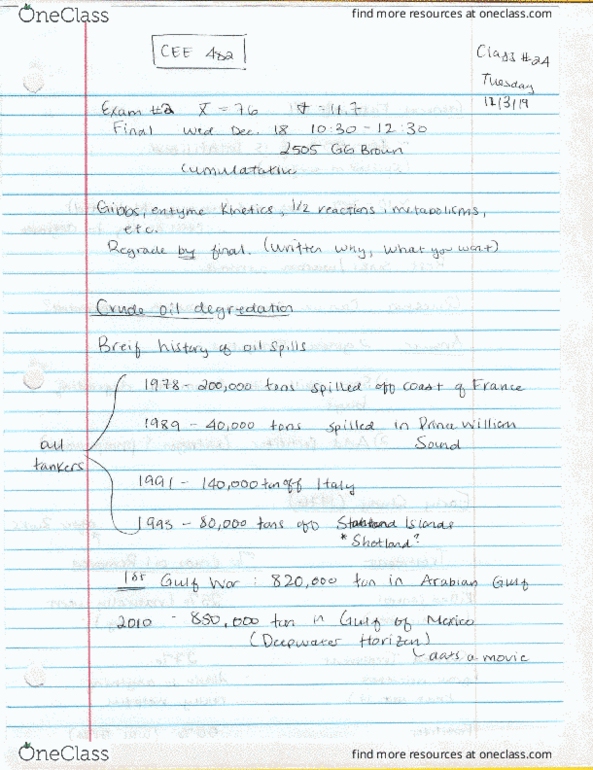 OneClass
find more resources at oneclass.com
CEE 482
Class #24
Tuesday
12/3/19
Exam #2 X̄ = 76 σ = 11.7
Final Wed Dec. 18 10:30 - 12:30
2505 GG Brown
cumulatative
Gibbs, enzyme kinetics, 1/2 reactions, metabolisms,
etc.
Regrade by final. (written why, what you want)
Crude oil degredation
Breif history of oil spills
1978 - 200,000 tons spilled off coast of France
1989 - 40,000 tons spilled in Prince William
Sound
all
tankers
1991 - 140,000 ton off Italy
1993 - 80,000 tons off Islands
* Shotland?
1st Gulf War : 820,000 ton in Arabian Gulf
2010 - 850,000 ton in Gulf of Mexico
(Deepwater Horizen)
a movie
OneClass
find more resources at oneclass.com